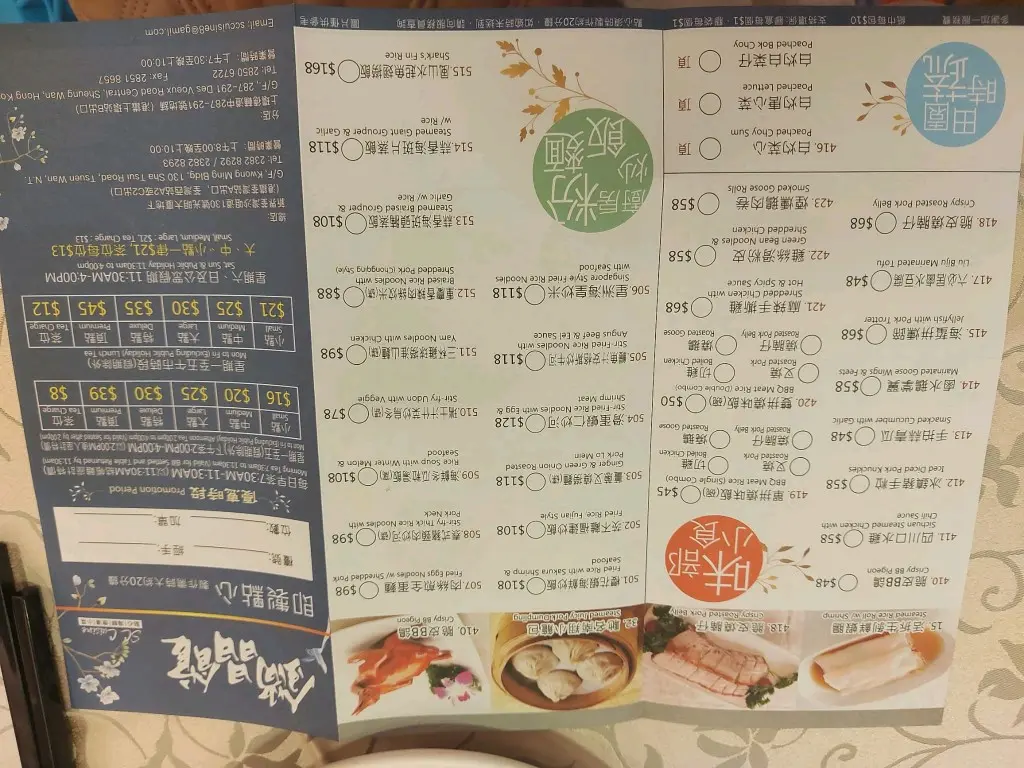 鑄晶館
SC Cuisine
即製點心 製作需時大約20分鐘
檯號: 經手:
位數: 加單:
優惠時段 Promotion Period
小點 中點 大點 特點 頂點 茶位
Small Medium Large Deluxe Premium Tea Charge
$16 $20 $25 $30 $39 $8
星期一至五午市時段(假期除外)
Mon to Fri (Excluding Public Holiday) Lunch
小點 中點 大點 特點 頂點 茶位
Small Medium Large Deluxe Premium Tea Charge
$21 $25 $30 $35 $45 $12
星期六、日及公眾假期 11:30AM-4:00PM
Sat, Sun & Public Holiday 11:30am to 4:00pm
大、中、小點一律$21, 茶位每位$13
Small, Medium, Large : $21, Tea Charge : $13
G/F, Ming Kwong Bldg, 130 Sha Tsui Road, Tsuen Wan, N.T.
Tel: 2382 8292 / 2382 8293
營業時間: 上午8:00至晚上10:00
分店:
上環德輔道中287-291號地舖 (港鐵上環站B出口)
G/F, 287-291 Des Voeux Road Central, Sheung Wan, Hong Kong
Tel: 2850 6722 Fax: 2851 8657
營業時間: 上午7:30至晚上10:00
Email: sccuisine8@gamil.com
410. 脆皮BB鴿
Crispy BB Pigeon
32. 馳名南翔小籠包
Steamed Juicy Pork Dumpling
418. 脆皮燒腩仔
Crispy Roasted Pork Belly
15. 活米生剝蝦腸
Steamed Rice Roll w/ Shrimp
廚房粉麵炒飯
501. 櫻花蝦海鮮炒飯 $108
Fried Rice with Shrimp Sakura & Seafood
502. 茨不離福建炒飯 $108
Fujian Rice, Fujian Style
503. 薑蔥叉燒撈麵(例) $118
Ginger & Green Onion Roasted Pork Lo Mein
504. 滑蛋蝦仁炒河 $128
Stir-Fried Rice Noodles with Egg & Shrimp Meat
505. 鱔魚汁安格斯炒牛河 $118
Stir-Fried Rice Noodles with Angus Beef & Eel Sauce
506. 星洲海皇炒米 $118
Singapore Style Fried Rice Noodles with Seafood
507. 肉絲煎全蛋麵 $98
Fried Eggs Noodles w/ Shredded Pork
508. 泰式豬頸肉炒河(例) $98
Stir-fry Thick Rice Noodles with Pork Neck
509. 海鮮冬瓜粒湯飯(例) $108
Rice Soup with Winter Melon & Seafood
510. 瑞士汁什菜炒烏冬(例) $78
Stir-fry Udon with Veggie
511. 三杯雞球淮山麵(例) $98
Yam Noodles with Chicken
512. 重慶香辣炸醬肉絲米(例) $88
Braised Rice Noodles with Shredded Pork (Chongqing Style)
513. 蒜香海斑頭腩飯 $108
Steamed Braised Grouper & Garlic w/ Rice
514. 蒜香海斑片蒸飯 $118
Steamed Giant Grouper & Garlic w/ Rice
515. 風山水起魚翅撈飯 $168
Shark's Fin Rice
味部小食
410. 脆皮BB鴿 $48
Crispy BB Pigeon
411. 四川口水雞 $58
Sichuan Steamed Chicken with Chili Sauce
412. 冰鎮豬手粒 $58
Iced Diced Pork Knuckles
413. 手拍蒜青瓜 $48
Smacked Cucumber with Garlic
414. 鹵水鵝掌翼 $58
Marinated Goose & Wings & Feets
415. 海蜇拼燻蹄 $68
Jellyfish with Pork Trotter
417. 六必居鹵水豆腐 $48
Liu Biju Marinated Tofu
418. 脆皮燒腩仔 $68
Crispy Roasted Pork Belly
419. 單拼燒味飯(碗) $45
BBQ Meat Rice (Single Combo)
叉燒
Roasted Pork
切雞
Boiled Chicken
燒腩仔
Roasted Pork Belly
燒鵝
Roasted Goose
420. 雙拼燒味飯(碗) $50
BBQ Meat Rice (Double Combo)
叉燒
Roasted Pork
切雞
Boiled Chicken
燒腩仔
Roasted Pork Belly
燒鵝
Roasted Goose
421. 麻辣手撕雞 $68
Shredded Chicken with Hot & Spicy Sauce
422. 雞絲滑粉皮 $58
Green Bean Noodles & Shredded Chicken
423. 煙燻鵝肉卷 $58
Smoked Goose Rolls
田園時蔬
416. 白灼菜心 頂
Poached Choy Sum
白灼唐心菜 頂
Poached Lettuce
白灼白菜仔 頂
Poached Bok Choy
圖片僅供參考